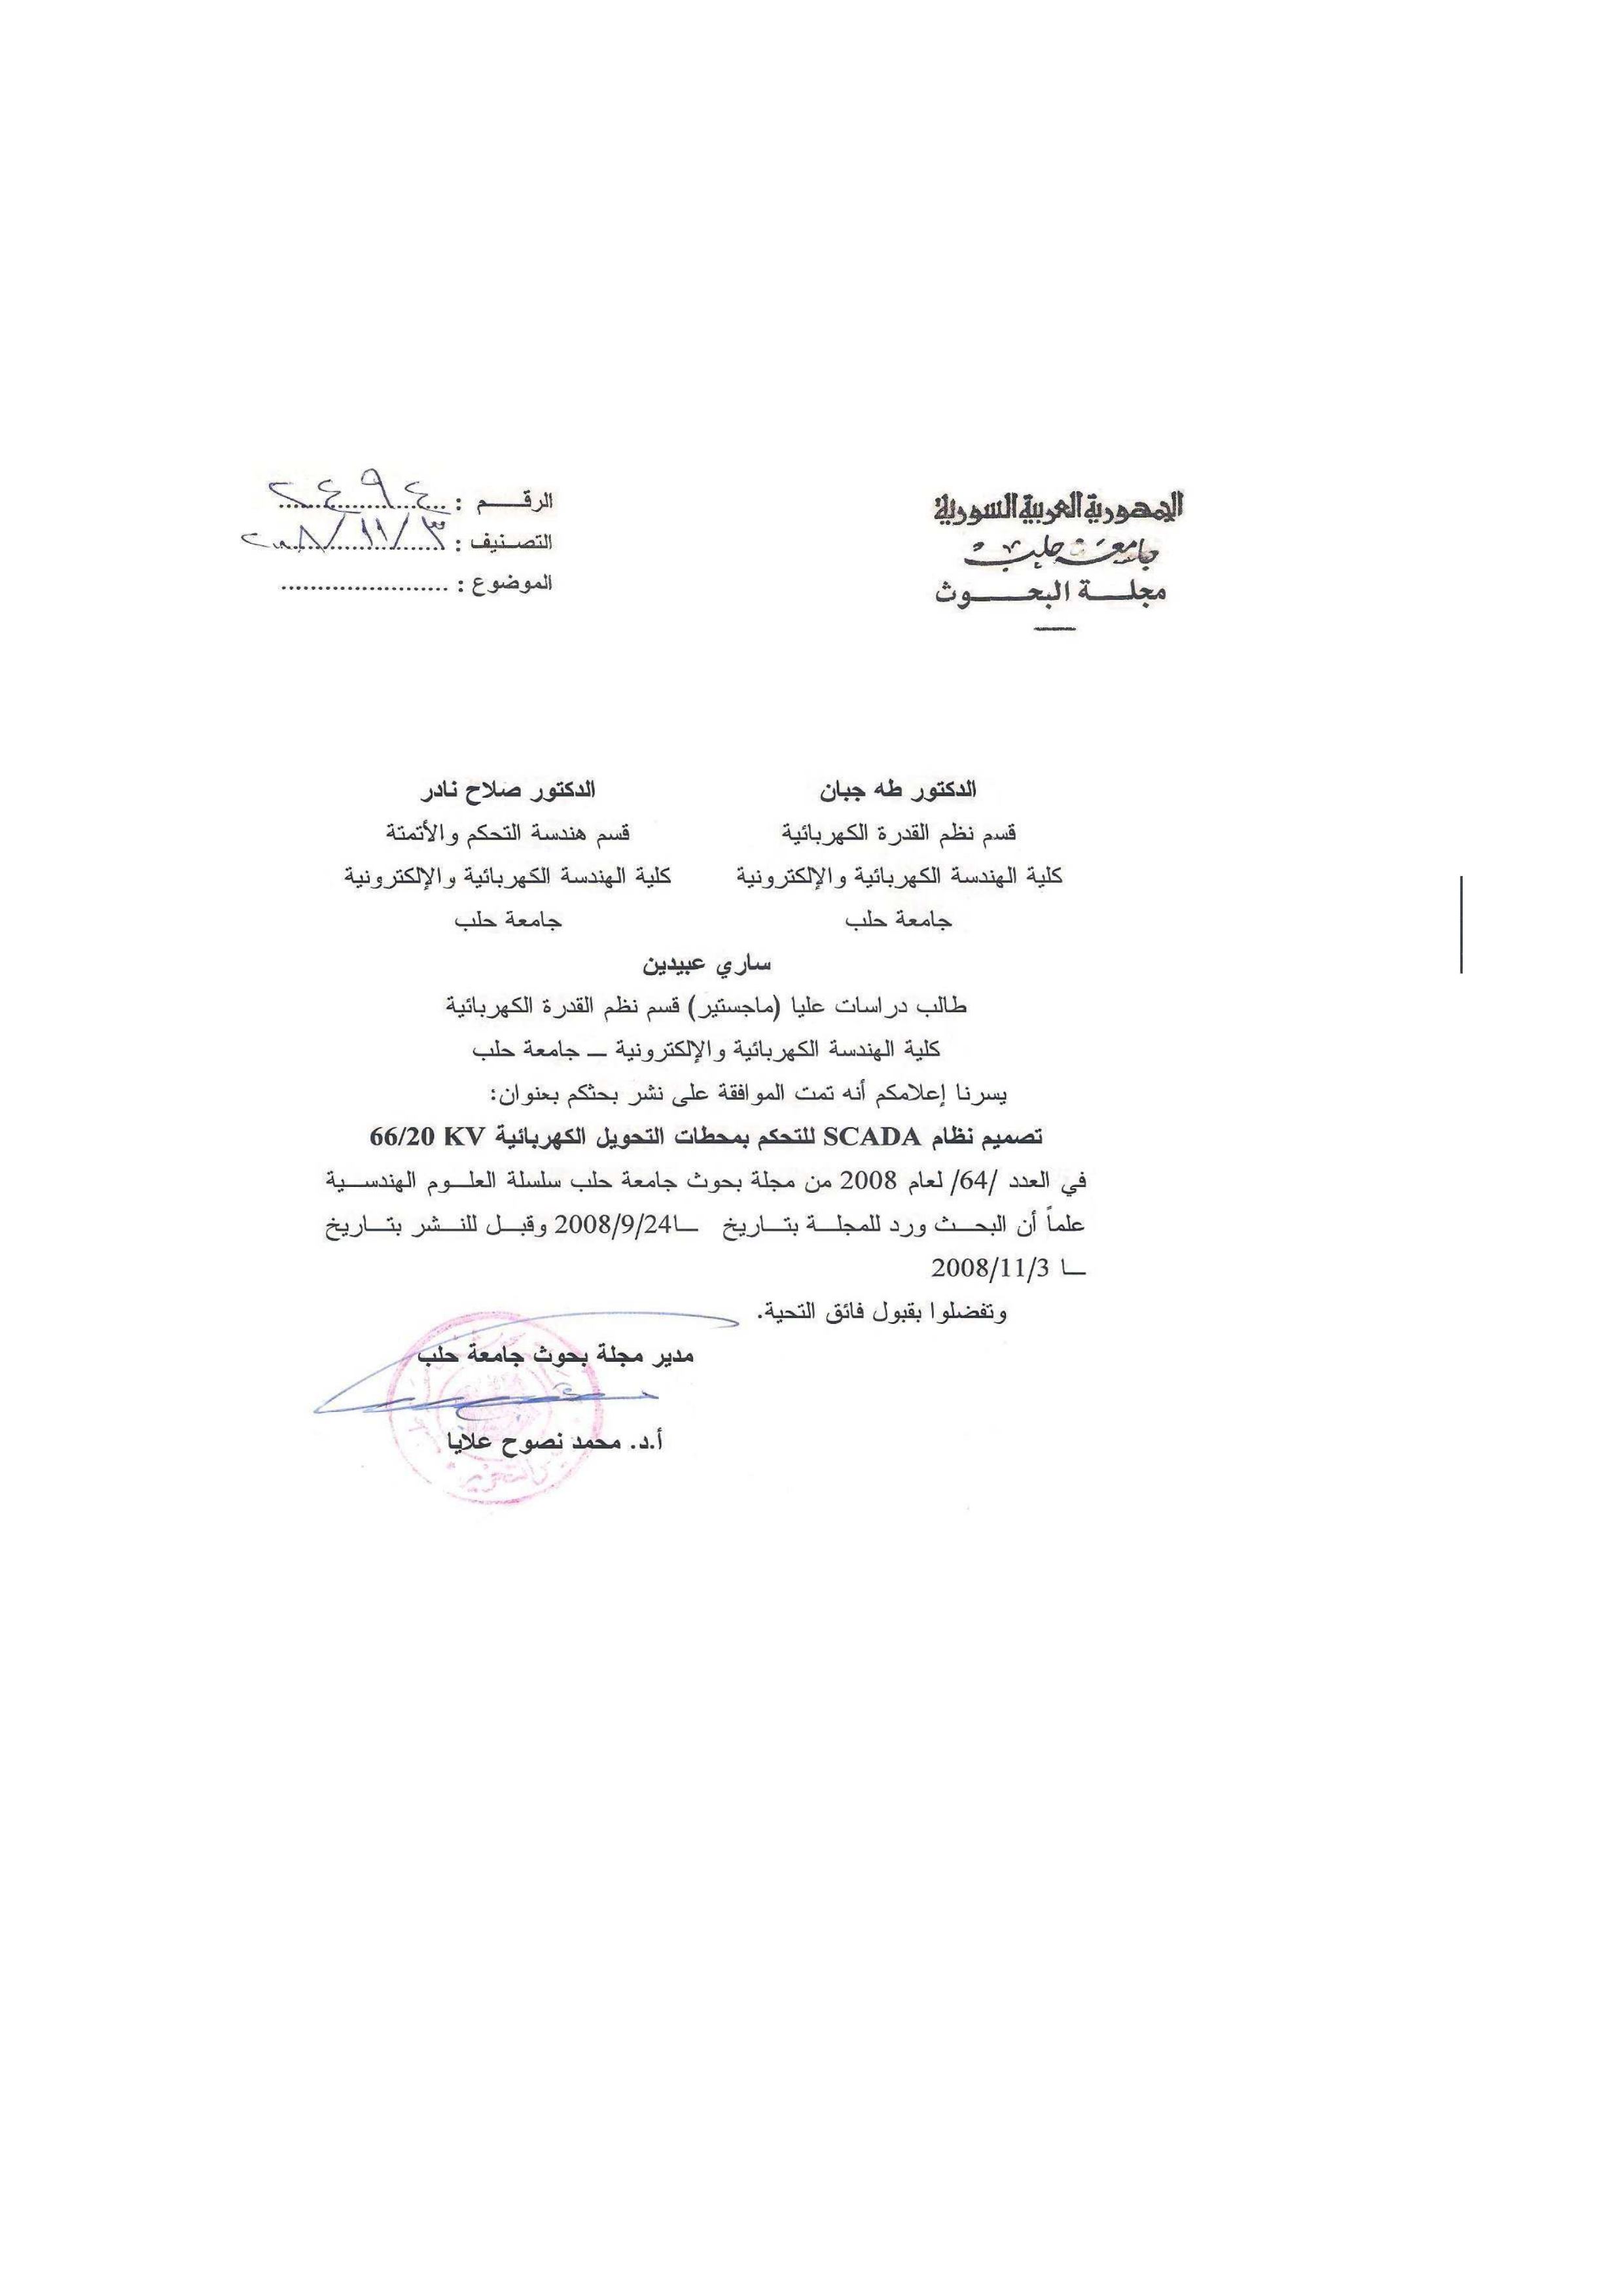 الجمهورية العربية السورية
جامعة حلب
مجلة البحوث
الرقم : ٢٤٩٤
التصنيف : ٢٠٠٨/١١/٣
الموضوع : ......................
الدكتور طه جبان
قسم نظم القدرة الكهربائية
كلية الهندسة الكهربائية والإلكترونية
جامعة حلب
الدكتور صلاح نادر
قسم هندسة التحكم والأتمتة
كلية الهندسة الكهربائية والإلكترونية
جامعة حلب
ساري عبيدين
طالب دراسات عليا (ماجستير) قسم نظم القدرة الكهربائية
كلية الهندسة الكهربائية والإلكترونية ــ جامعة حلب
يسرنا إعلامكم أنه تمت الموافقة على نشر بحثكم بعنوان:
تصميم نظام SCADA للتحكم بمحطات التحويل الكهربائية 66/20 KV
في العدد /64/ لعام 2008 من مجلة بحوث جامعة حلب سلسلة العلوم الهندسية
علماً أن البحث ورد للمجلة بتاريخ ــا2008/9/24 وقبل للنشر بتاريخ
ــا 2008/11/3
وتفضلوا بقبول فائق التحية.
مدير مجلة بحوث جامعة حلب
أ.د. محمد نصوح علايا